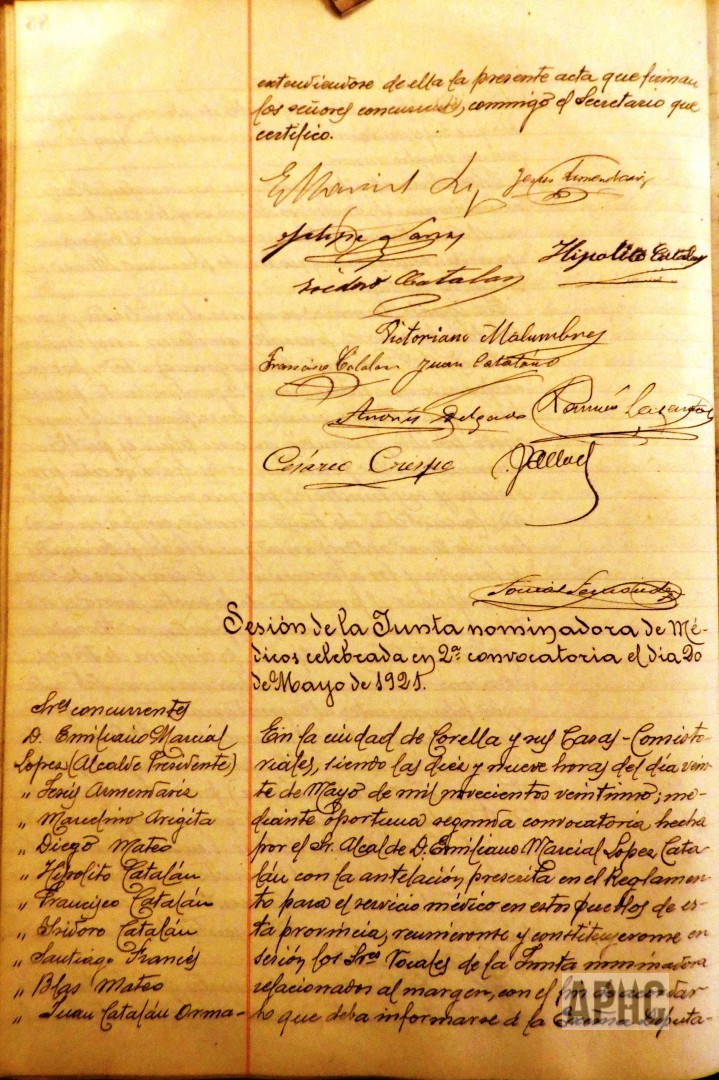 extendiendose de ella la presente acta que firman
los señores concurrentes, conmigo el Secretario que
certifico.
E Marcial
Jesús Armendariz
Felipe
Hipolito Catalan
Isidoro Catalan
Victoriano Malumbres
Francisco Catalan Juan Catalán
Andrés Delgado Ramón
Cesáreo Crespo
Sesión de la Junta nominadora de Mé-
dicos celebrada en 2ª convocatoria el día 20
de Mayo de 1921.
Sres concurrentes
D. Emiliano Marcial
Lopez (Alcalde Presidente)
„ Jesús Armendariz
„ Marcelino Arigita
„ Diego Mateo
„ Hipolito Catalán
„ Francisco Catalán
„ Isidoro Catalán
„ Santiago Francés
„ Blas Mateo
„ Juan Catalán Orma-
En la ciudad de Corella y sus Casas-Consisto-
riales, siendo las diez y nueve horas del día vein-
te de Mayo de mil novecientos veintiuno; me-
diante oportuna segunda convocatoria hecha
por el Sr. Alcalde D. Emiliano Marcial Lopez Cata-
lán con la antelación prescrita en el Reglamen-
to para el servicio médico en estos pueblos de es-
ta provincia, reunieronse y constituyeronse en
sesión los Sres Vocales de la Junta nominadora
relacionados al margen, con el fin de acordar
lo que deba informarse á la Excma Diputa-
APHC